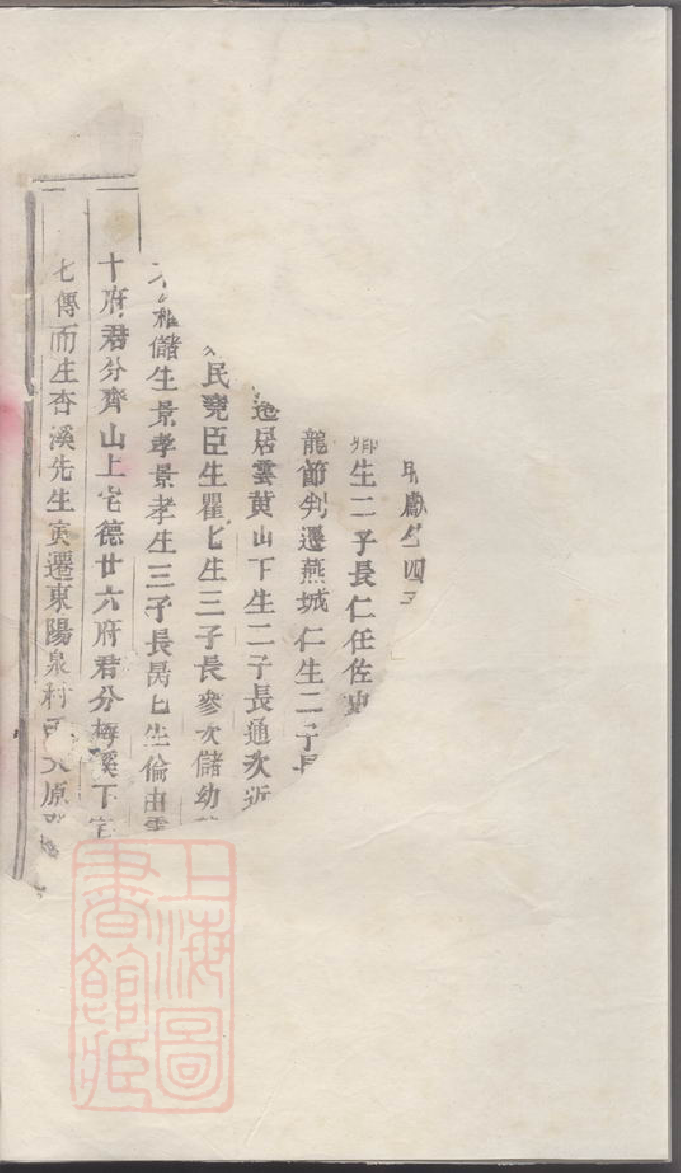 獻生四子
卿生二子長仁任佐史
龍節判遷燕城仁生二子長
逸居雲黄山下生二子長通次近
民堯臣生瞿七生三子長參次儲幼
儲生景孝景孝生三子長昺七生倫由雲
十府君分齊山上宅德廿六府君分梅溪下宅
七傳而生杏溪先生寅遷東陽泉村西太原
上海圖書館藏